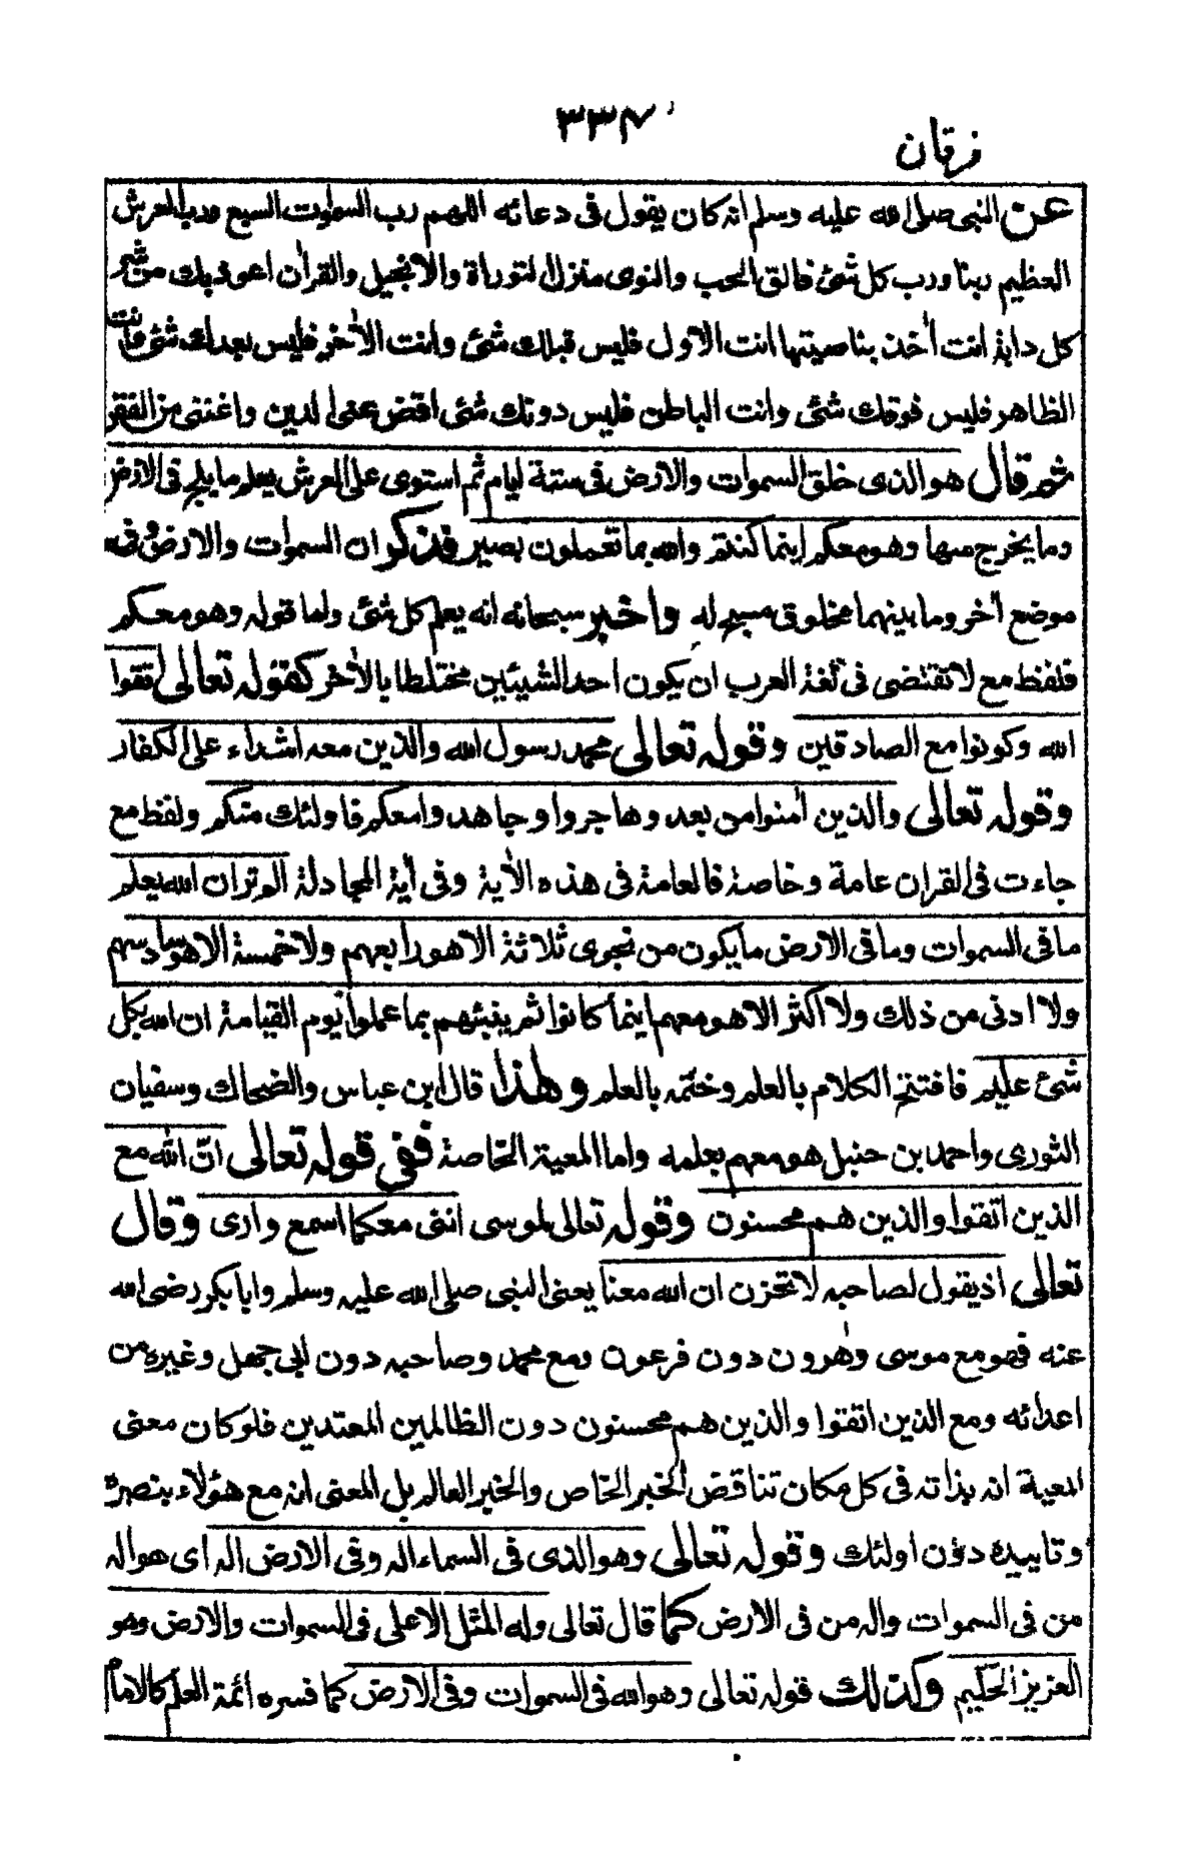 ٣٣٧
فرقان
عن النبی صلی الله علیه وسلم انه کان یقول فی دعائه اللهم رب السمٰوٰت السبع ورب العرش
العظیم ربنا ورب کل شئ فالق الحب والنوی منزل التوراة والانجیل والقراٰن اعوذ بك من شر
کل دابة انت اٰخذ بناصیتها انت الاول فلیس قبلك شئ وانت الاٰخر فلیس بعدك شئ وانت
الظاهر فلیس فوقك شئ وانت الباطن فلیس دونك شئ اقض عنی الدین واغننی من الفقر
ثم قال هو الذی خلق السموات والارض فی ستة ایام ثم استوی علی العرش یعلم ما یلج فی الارض
وما یخرج منها وهو معکم اینما کنتم والله بما تعملون بصیر فذکر ان السموات والارض وفی
موضع اٰخر وما بینهما مخلوق مسبح له واخبر سبحانه انه یعلم کل شئ ولما قوله وهو معکم
فلفظ مع لا تقتضی فی لغة العرب ان یکون احد الشیئین مختلطا بالاٰخر کقوله تعالی اتقوا
الله وکونوا مع الصادقین وقوله تعالی محمد رسول الله والذین معه اشداء علی الکفار
وقوله تعالی والذین اٰمنوا من بعد وهاجروا وجاهدوا معکم فاولئك منکم ولفظ مع
جاءت فی القران عامة وخاصة فالعامة فی هذه الاٰیة وفی اٰیة المجادلة الم تر ان الله یعلم
ما فی السموات وما فی الارض ما یکون من نجوی ثلاثة الا هو رابعهم ولا خمسة الا هو سادسهم
ولا ادنی من ذلك ولا اکثر الا هو معهم اینما کانوا ثم ینبئهم بما عملوا یوم القیامة ان الله بکل
شئ علیم فافتتح الکلام بالعلم وختمه بالعلم ولهذا قال ابن عباس والضحاك وسفیان
الثوری واحمد بن حنبل هو معهم بعلمه واما المعیة الخاصة ففی قوله تعالی انّ الله مع
الذین اتقوا والذین هم محسنون وقوله تعالی لموسی اننی معکما اسمع واری وقال
تعالی اذ یقول لصاحبه لا تحزن ان الله معنا یعنی النبی صلی الله علیه وسلم وابابکر رضی الله
عنه فهو مع موسی وهٰرون دون فرعون ومع محمد وصاحبه دون ابی جهل وغیره من
اعدائه ومع الذین اتقوا والذین هم محسنون دون الظالمین المعتدین فلو کان معنی
المعیة انه بذاته فی کل مکان تناقض الخبر الخاص والخبر العالم بل المعنی انه مع هؤلاء بنصره
وتاییده دون اولئك وقوله تعالی وهو الذی فی السماء اله وفی الارض اله ای هو اله
من فی السموات واله من فی الارض کما قال تعالی وله المثل الاعلی فی السموات والارض وهو
العزیز الحکیم وکذلك قوله تعالی وهو الله فی السموات وفی الارض کما فسره ائمة العلم کالامام